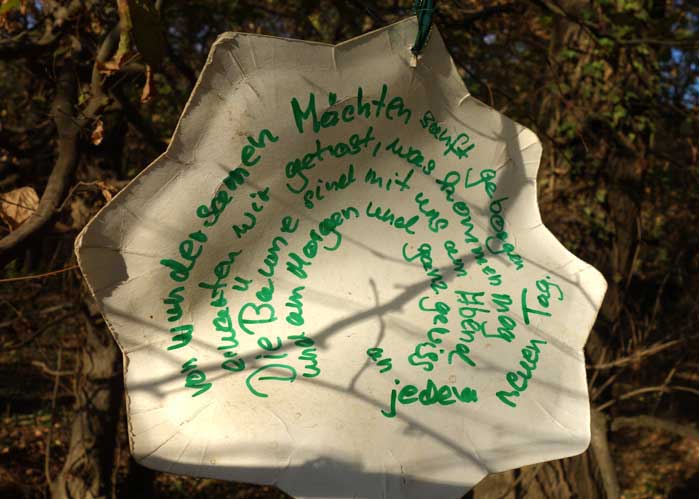 Von wundersamen Mächten sanft gebogen
erwarten wir getrost, was kommen mag
Die Bäume sind mit uns am Abend
und am Morgen und ganz gewiss
an
jedem
neuen Tag.